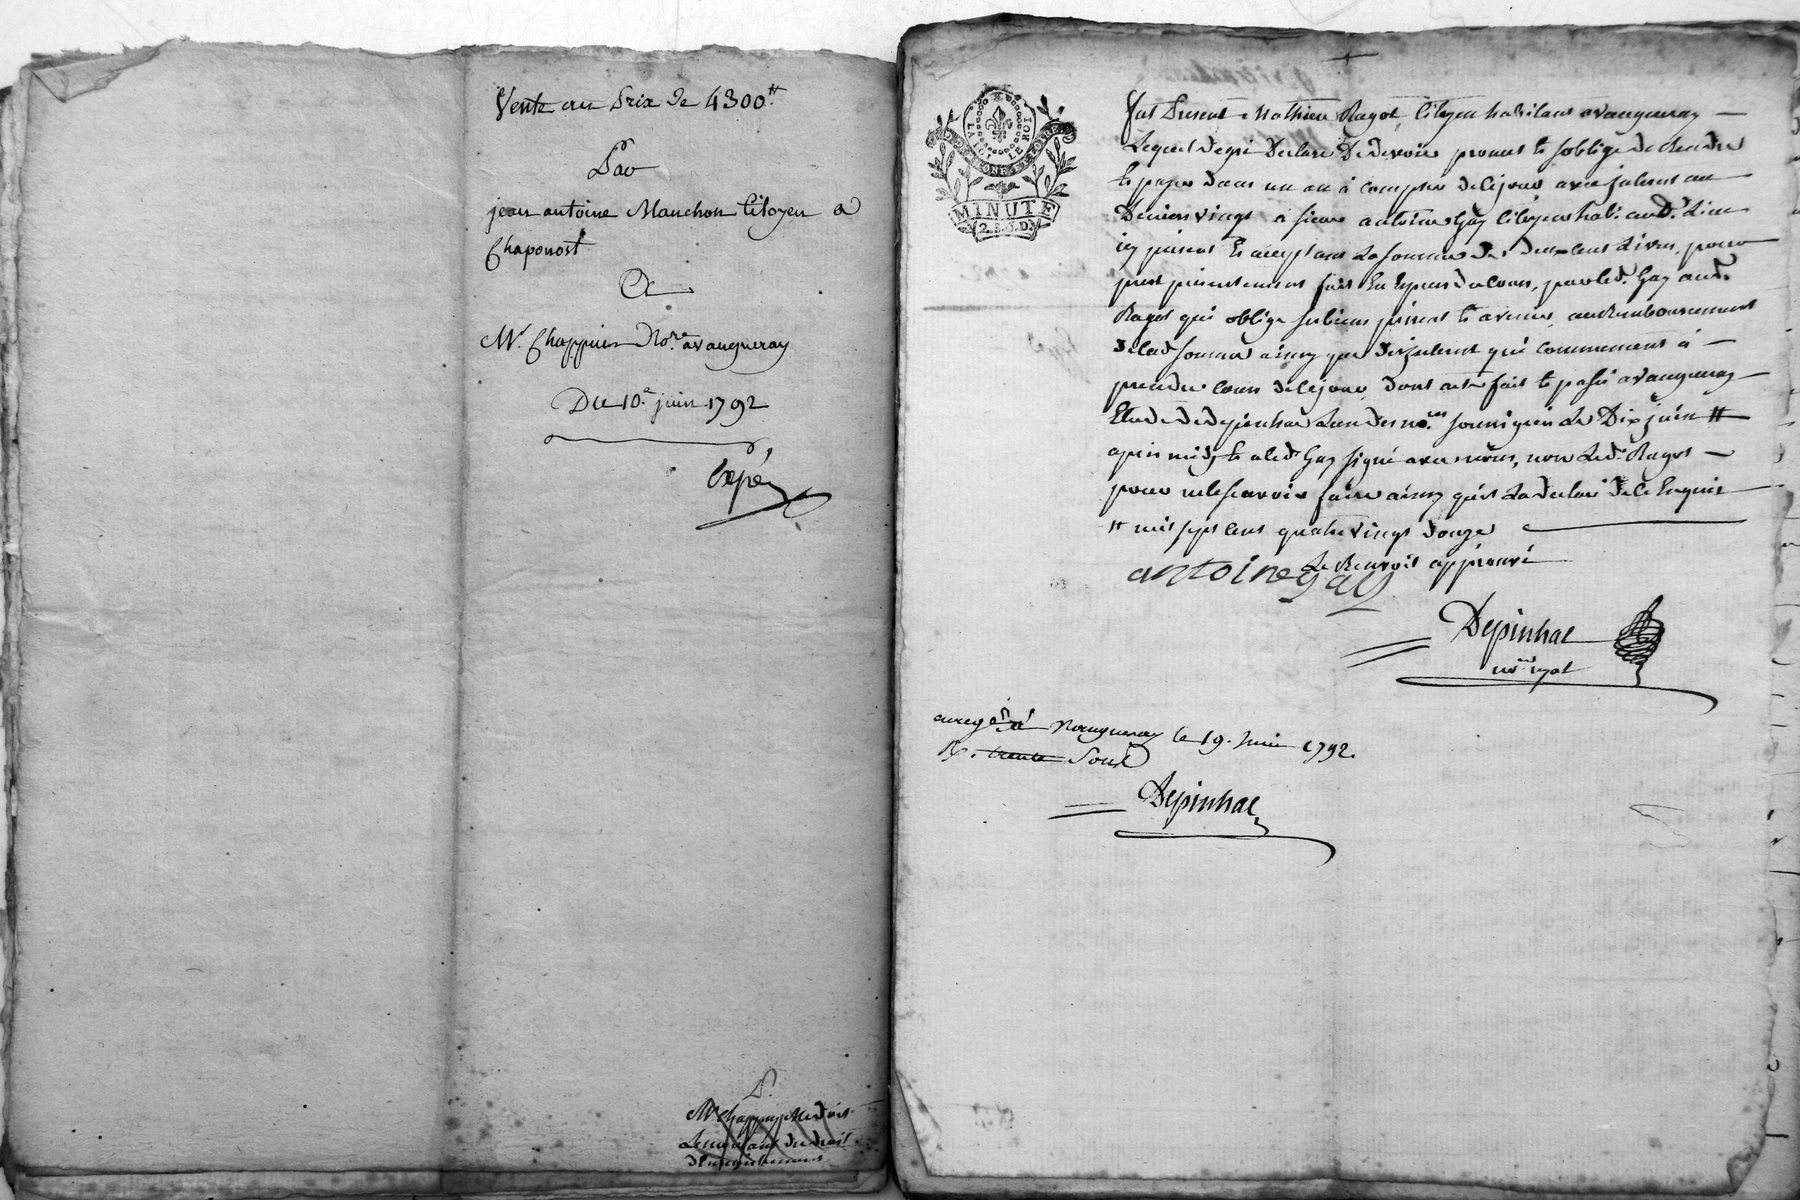 Vente au Prix de 4300.tt
Par
jean antoine Manchon Citoyen a
Chaponost
A
Mr. Chappuis Nore. a vaugneray
Du 10.e juin 1792
Expé
Mr Chappuy me doit
Le montant du droit
d'enregistrement
LA LOI LE ROI
MINUTE
2.S.6.D.
fut Present Mathieu Ragot, Citoyen habitant a vaugneray
Lequel de gré Declare De devoir promet et soblige de Rendre
et payer dans un an à compter de cejour avec jnterest au
Denier vingt a sieur antoine Gay Citoyen habt. aud. Lieu
icy present et acceptant La somme de deux cent Livres, pour
prest presentement fait En Especes de cours, par led. Gay aud.
Ragot qui oblige ses biens presents et avenir, au Remboursement
de lad somme ainsy que des jnterest qui commencent à
prendre cours de cejour, dont acte fait et passé a vaugneray
Etude de depinhac Lun des no.res soussignés Le Dix juin #
apres midy et a led. Gay signé avec nous, non Led. Ragot
pour ne le scavoir faire ainsy qu'il La declaré de ce Enquis
# mil sept cent quatre vingt douze
Le Renvoit appreuvé
antoine gay
Depinhac
nore. royal
enregé. à Vaugneray le 19. Juin 1792.
R. trente Sous
Depinhac